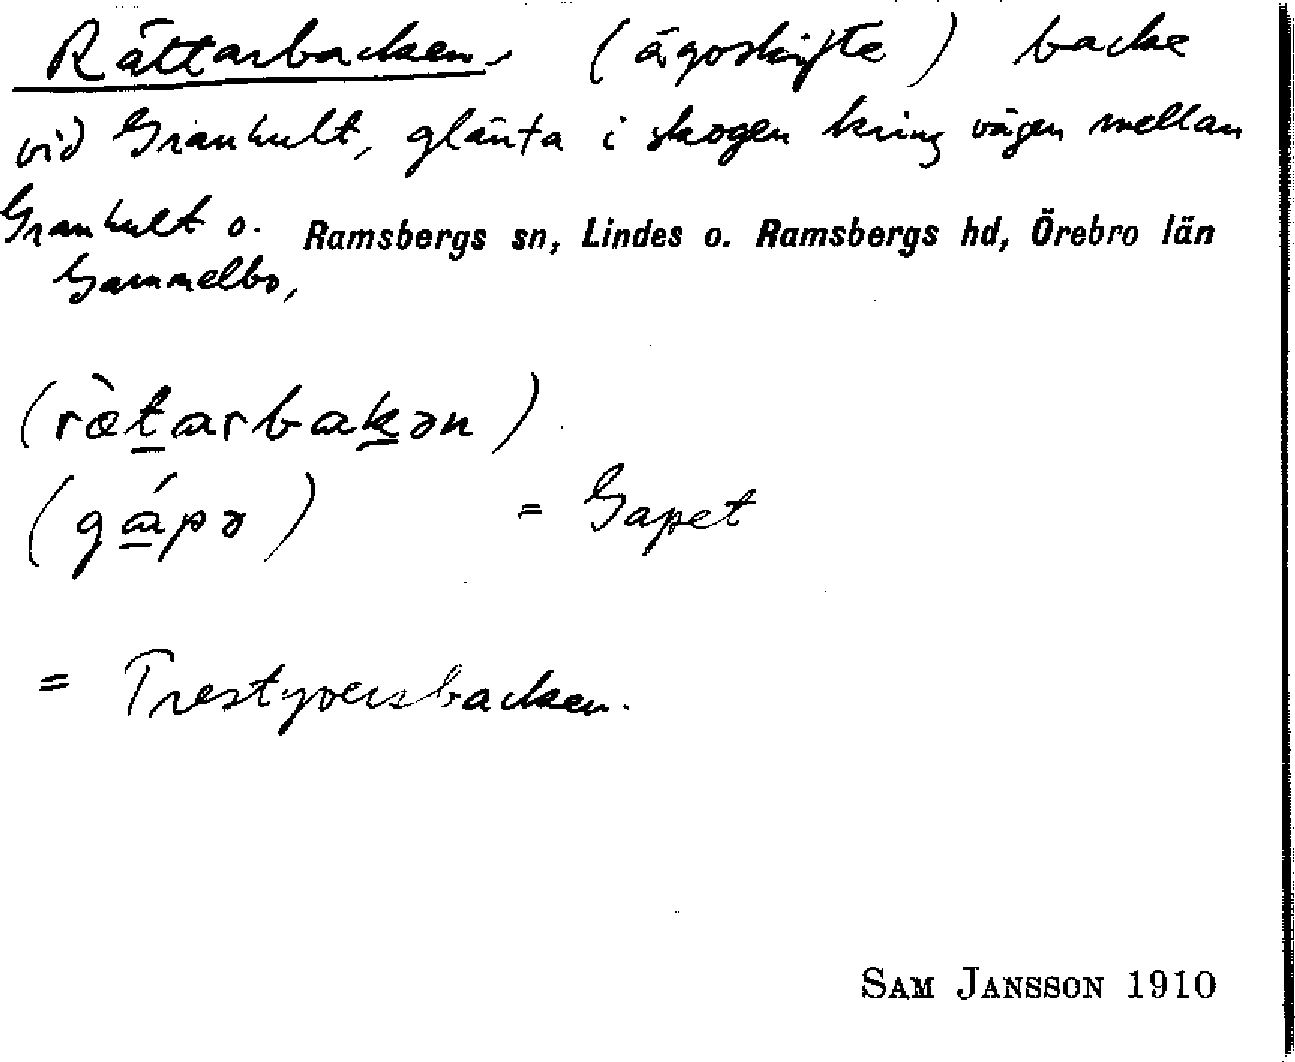 Rättarbacken (ägoskifte) backe
vid Granhult, glänta i skogen kring vägen mellan
Granhult o. Ramsbergs sn, Lindes o. Ramsbergs hd, Örebro län
Gammelbo,
(rὰ̀tarbakən)
(gápə) = Gapet
= Trestyversbacken.
SAM JANSSON 1910